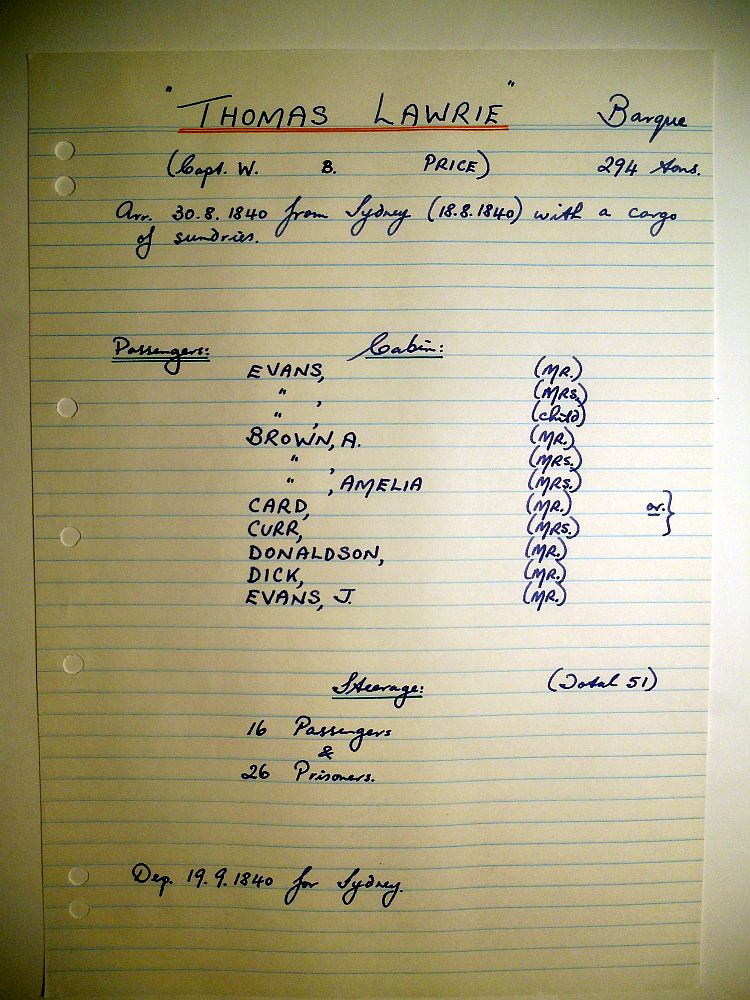 "THOMAS LAWRIE" Barque
(Capt. W. B. PRICE) 294 tons.
Arr. 30.8.1840 from Sydney (18.8.1840) with a cargo
of sundries.
Passengers: Cabin:
EVANS, (MR.)
" , (MRS.)
" , (child)
BROWN, A. (MR.)
" , (MRS.)
" , AMELIA (MRS.)
CARD, (MR.) or. }
CURR, (MRS.)
DONALDSON, (MR.)
DICK, (MR.)
EVANS, J. (MR.)
Steerage: (Total 51)
16 Passengers
&
26 Prisoners.
Dep. 19.9.1840 for Sydney.